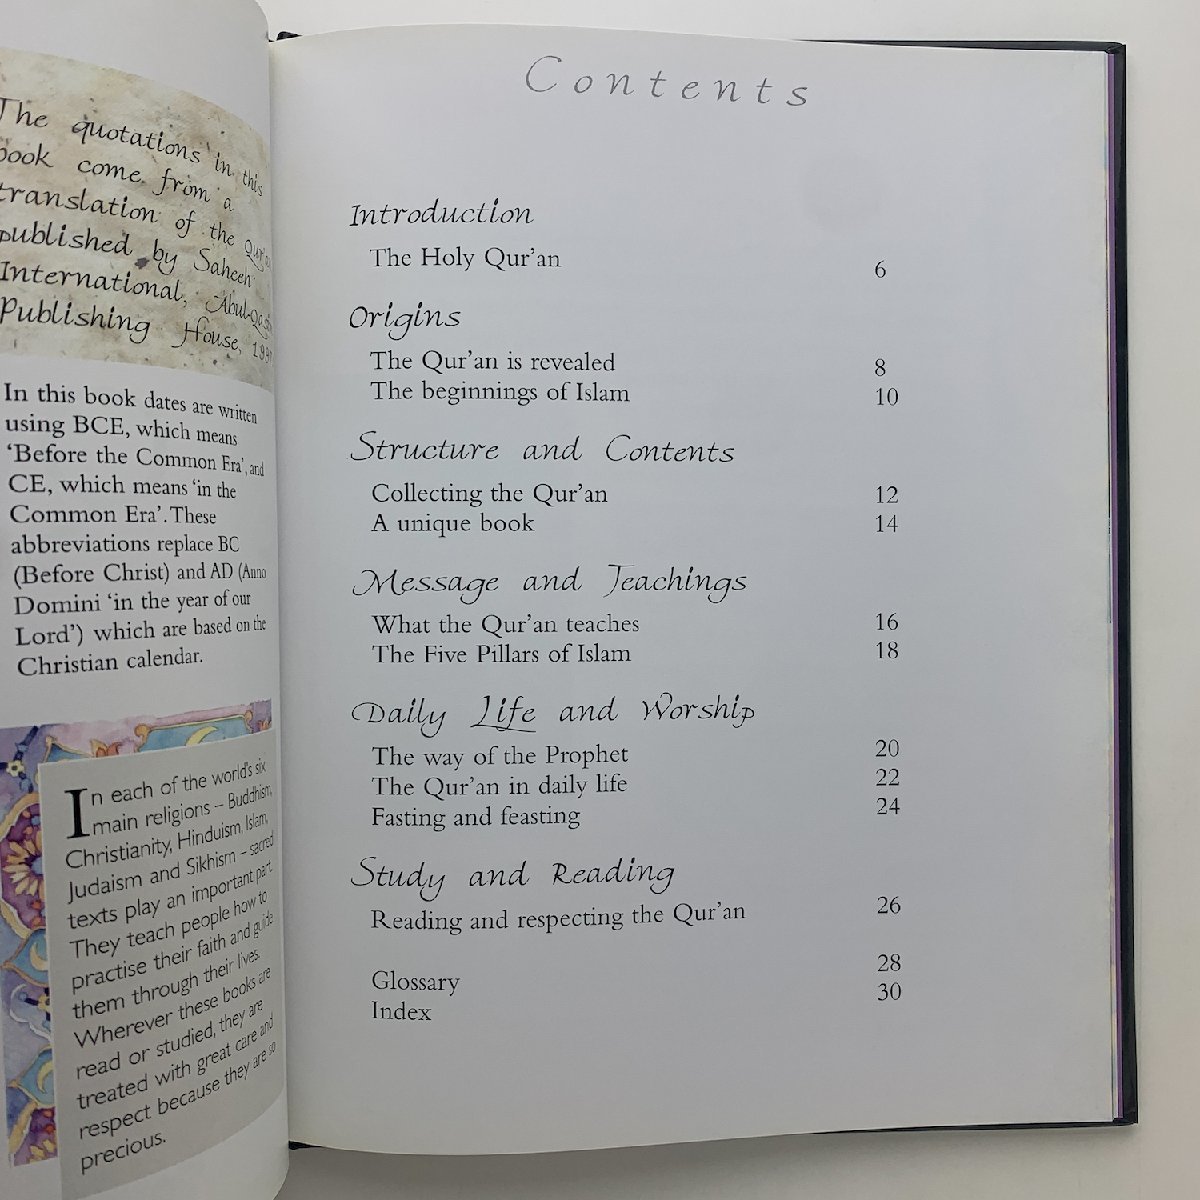 The quotations in this
book come from a
translation of the
published by Saheen
International, Abul-
Publishing House,
In this book dates are written
using BCE, which means
‘Before the Common Era’, and
CE, which means ‘in the
Common Era’. These
abbreviations replace BC
(Before Christ) and AD (Anno
Domini ‘in the year of our
Lord’) which are based on the
Christian calendar.
In each of the world's six
main religions – Buddhism,
Christianity, Hinduism, Islam,
Judaism and Sikhism – sacred
texts play an important part.
They teach people how to
practise their faith and guide
them through their lives.
Wherever these books are
read or studied, they are
treated with great care and
respect because they are so
precious.
Contents
Introduction
The Holy Qur’an 6
Origins
The Qur’an is revealed 8
The beginnings of Islam 10
Structure and Contents
Collecting the Qur’an 12
A unique book 14
Message and Teachings
What the Qur’an teaches 16
The Five Pillars of Islam 18
Daily Life and Worship
The way of the Prophet 20
The Qur’an in daily life 22
Fasting and feasting 24
Study and Reading
Reading and respecting the Qur’an 26
Glossary 28
Index 30